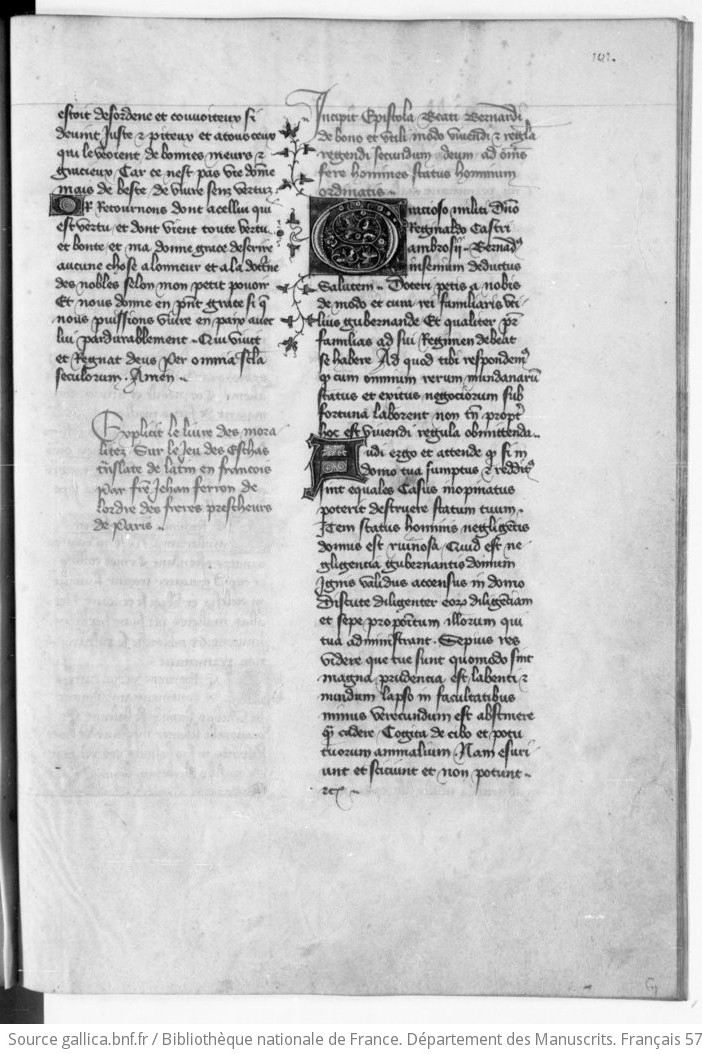 101.
estoit desordene et convoiteux si
devint Juste ⁊ piteux et atous ceux
qui le veoient de bonnes meurs ⁊
gracieux Car ce nest pas vie dome
mais de beste de vivre senz vertuz
OR Retournons dont acellui qui
est vertu et dont vient toute vertu
et bonte et ma donne grace descrire
aucune chose a lonneur et a la doctne
des nobles selon mon petit povoir
Et nous donne en pnt grace si q̃
nous puissions vivre en paix avec
lui pardurablement. Qui vivit
et Regnat deus per omnia scla
seculorum. Amen.
Explicit le livre des mora
litez Sur le Jeu des Eschas
tnslate de latin en francois
par fre Jehan ferron de
lordre des freres prescheurs
de Paris.
Incipit Epistola Beati Bernardi
de bono et utili modo vivendi ⁊ regla
regendi secundum deum ad oms
fere homines status hominum
ordinatis
Gracioso militi Dno
Reginaldo Castri
ambrosij. Bernad9
in senium deductus
Salutem. Doceri petis a nobis
de modo et cura rei familiaris uti
lius gubernande Et qualiter pr
familias ad sui Regimen debeat
se habere Ad quod tibi respondem9
q cum omnium rerum mundanarũ
status et exitus negociorum sub
fortuna laborent non tñ propt
hoc est vivendi regula obmittenda.
Audi ergo et attende q si in
domo tua sumptus ⁊ reddit9
sint equales Casus inopinatus
poterit destruere statum tuum.
Item status hominis negligetis
domus est ruinosa Quid est ne
gligencia gubernantis domum
Ignis validus accensus in domo
Discute diligenter eorz diligeciam
et sepe propoitum illorum qui
tua administrant. Sepius res
videre que tue sunt quomodo sint
magna prudencia est labenti ⁊
nundum lapso in facultatibus
minus verecundum est abstinere
q̃ cadere Cogita de cibo et potu
tuorum animalium Nam esuri
unt et sciciunt et non petunt.
⁊c.
Source gallica.bnf.fr / Bibliothèque nationale de France. Département des Manuscrits. Français 57